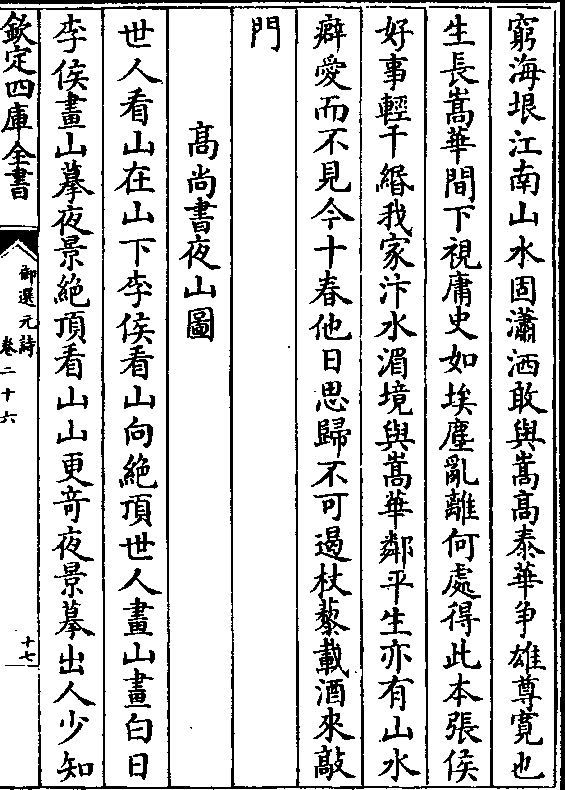 窮海垠江南山水固瀟洒敢與嵩高泰華争雄尊寛也
生長嵩華間下視庸史如埃塵亂離何處得此本張侯
好事輕千緡我家汴水湄境與嵩華鄰平生亦有山水
癖愛而不見今十春他日思歸不可遏杖藜載酒來敲
門
髙尚書夜山圖
世人看山在山下李侯看山向絶頂世人畫山畫白日
李侯畫山摹夜景絶頂看山山更竒夜景摹出人少知
欽定四庫全書
御選元詩
卷二十六
十七